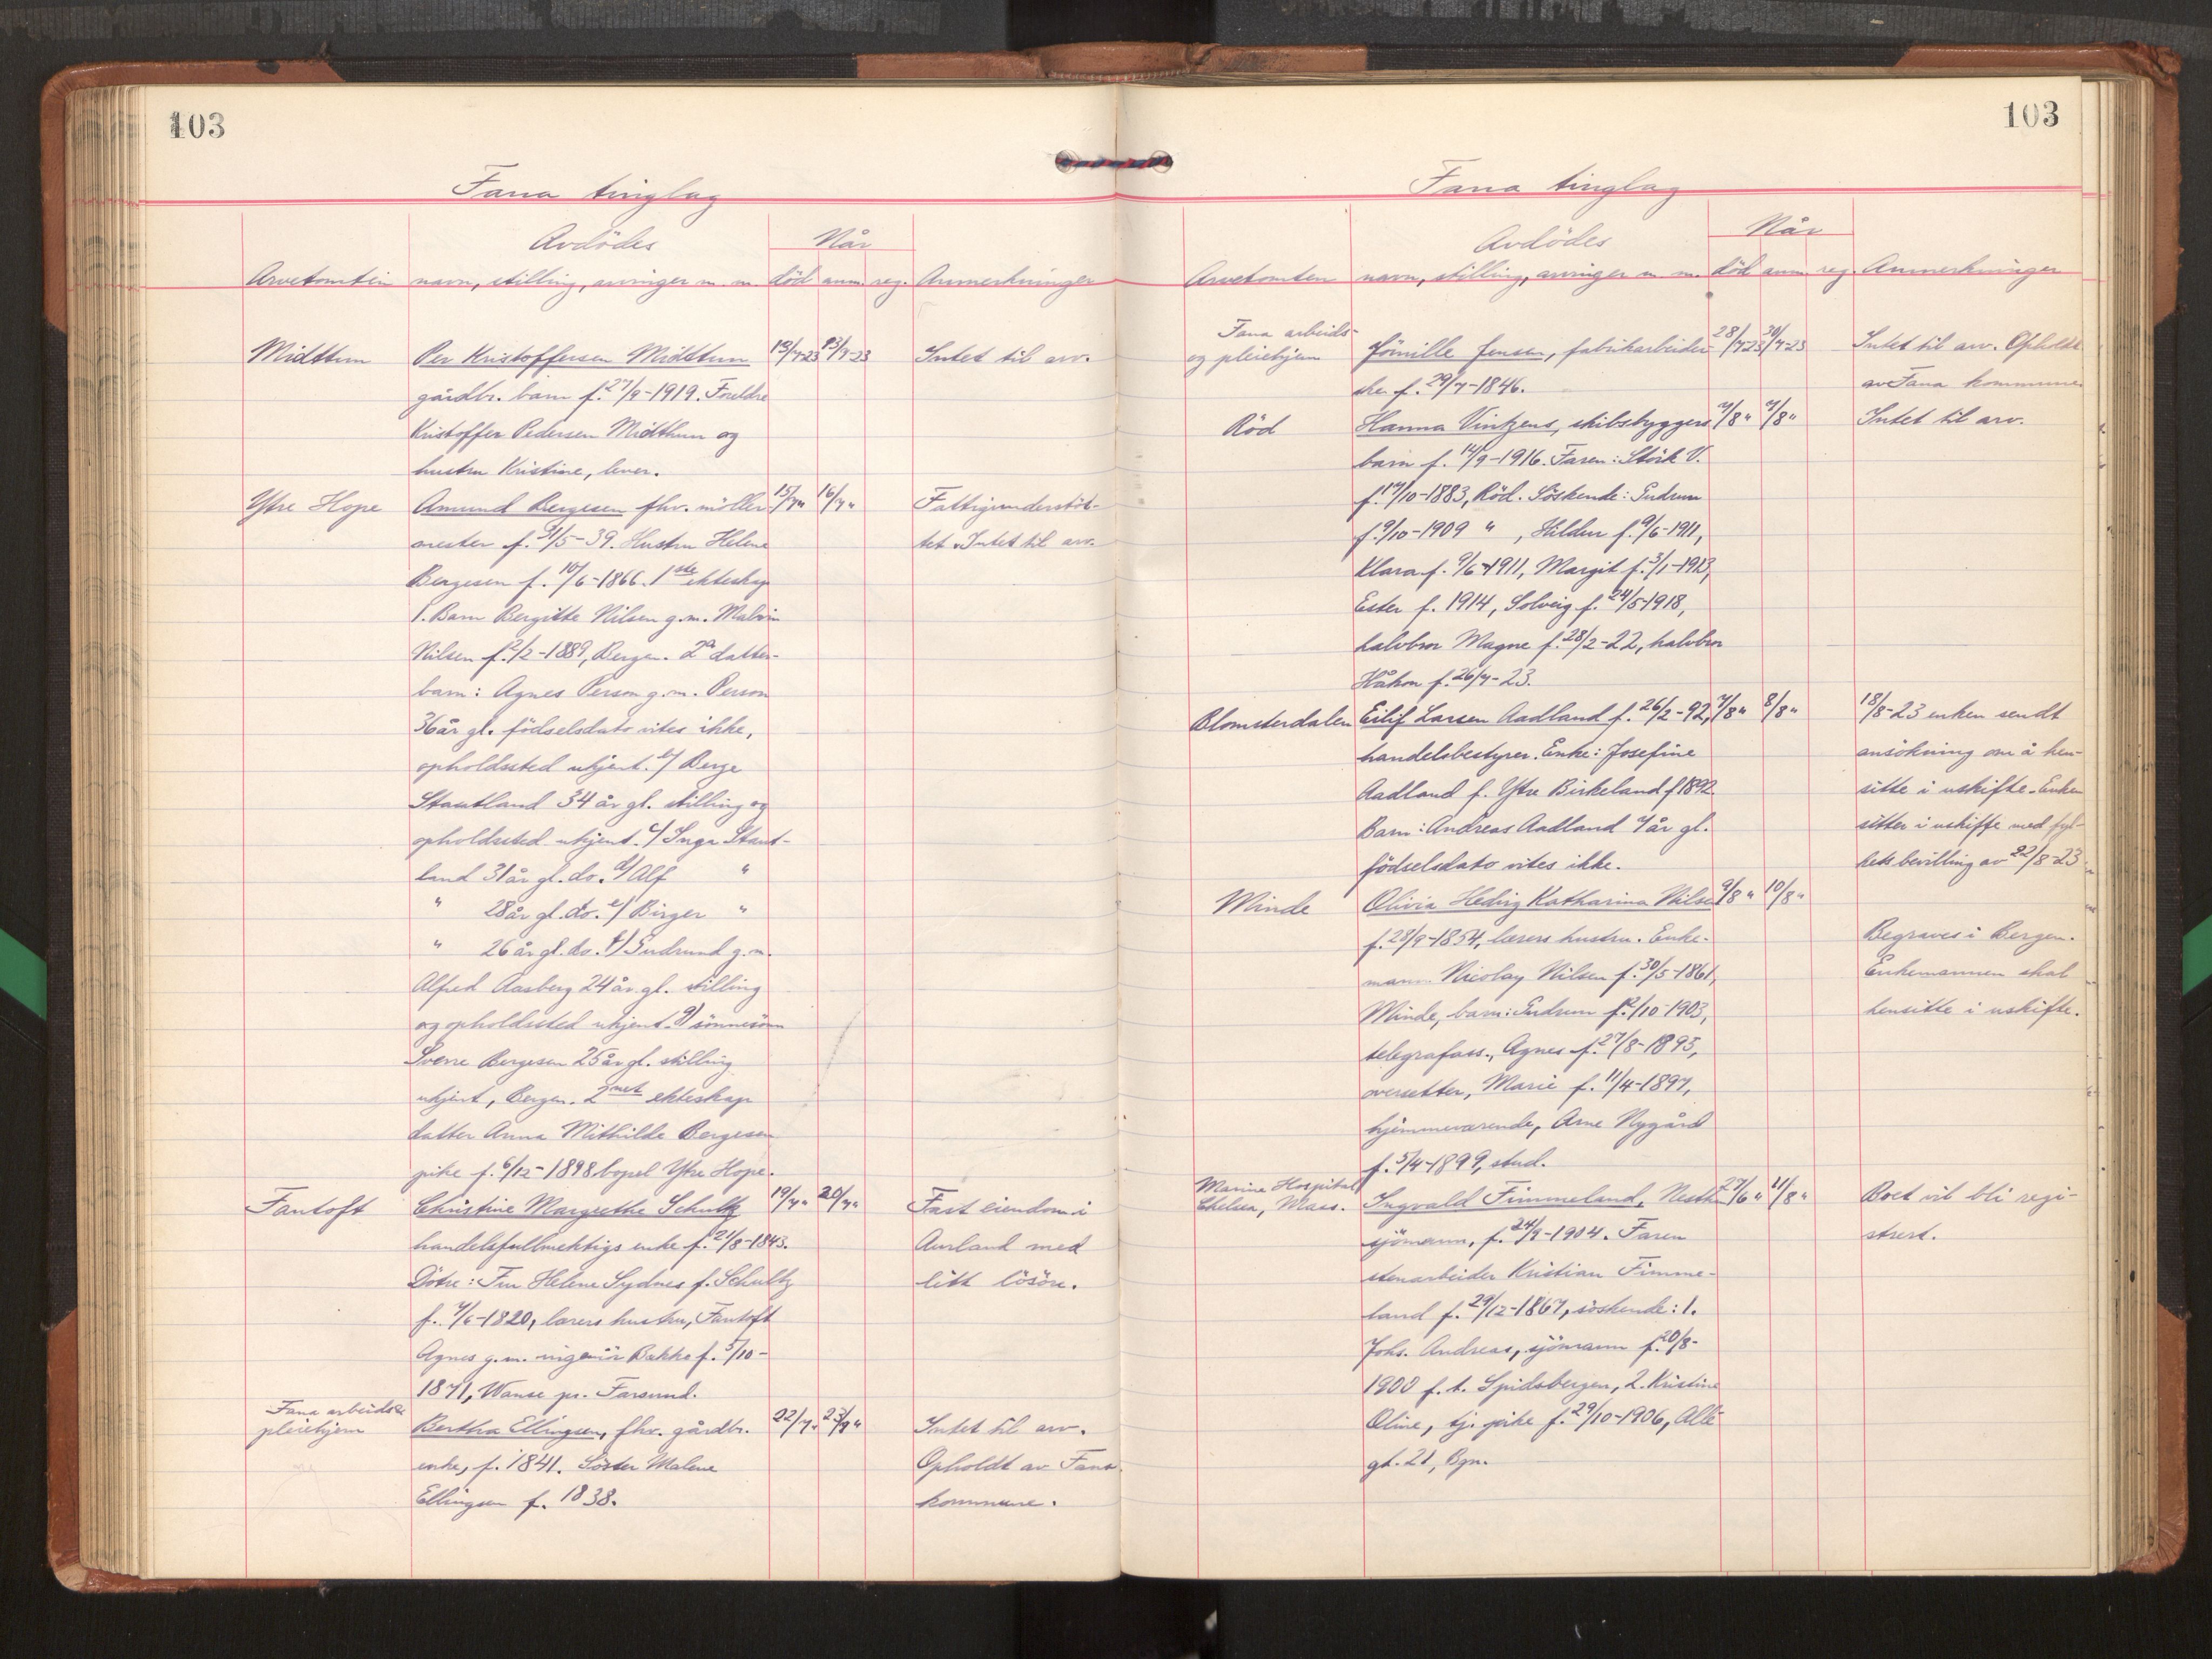 103
Fana tinglag
Avdödes
Når
Arvetomten navn, stilling, arvinger m. m. död anm. reg. Anmerkninger
Midttun Per Kristoffersen Midttun 13/7-23 13/7-23 Intet til arv.
gårdbr. barn f. 27/9-1919. Foreldre
Kristoffer Pedersen Midttun og
hustru Kristine, lever.
Ytre Hope Amund Bergesen fhv. möller- 15/7" 16/7" Fattigunderstöt-
mester f. 31/5-39. Hustru Helene tet. Intet til arv.
Bergesen f. 10/6-1866. 1ste ekteskap
1. Barn Bergitte Nilsen g.m. Malvin
Nilsen f. 2/2-1889, Bergen. 2a datter-
barn: Agnes Person g.m. Person
36 år gl. födselsdato vites ikke,
opholdssted ukjent. b/ Berge
Stautland 34 år gl. stilling og
opholdssted ukjent. c/ Inga Staut-
land 31 år gl. do. d/ Alf "
" 28 år gl. do. e/ Birger "
" 26 år gl. do. f/ Gudrund g.m.
Alfred Aasberg 24 år gl. stilling
og opholdssted ukjent. g/ sönnesönn
Sverre Bergesen 25 år gl. stilling
ukjent, Bergen. 2net ekteskap
datter Anna Mithilde Bergesen
pike f. 6/12-1898 bopel Ytre Hope.
Fantoft Christine Margrethe Schultz 19/7" 20/7" Fast eiendom i
handelsfullmektigs enke f. 21/8-1843. Aurland med
Dötre: Fru Helene Sydnes f. Schultz litt lösöre.
f. 7/6-1820, lærers hustru, Fantoft
Agnes g.m. ingeniör Bakke f. 5/10-
1871, Vanse pr. Farsund.
Fana arbeids &
pleiehjem Bertha Ellingsen, fhv. gårdbr. 22/7" 23/7" Intet til arv.
enke, f. 1841. Söster Malene Opholdt av Fana
Ellingsen f. 1838. kommune.
103
Fana tinglag
Avdödes
Når
Arvetomten navn, stilling, arvinger m m. död anm reg. Anmerkninger
Fana arbeids-
og pleiehjem Jensen, fabrikarbeider- 28/7-23 30/7-23 Intet til arv. Opholdt
ske f. 29/7-1846. av Fana kommune.
Röd Hanna Vintzens, skibsbyggers 7/8" 7/8" Intet til arv.
barn f. 14/9-1916. Faren: Störk V.
f. 17/10-1883, Röd. Söskende: Gudrun
f. 9/10-1909 ", Hildur f. 9/6-1911,
Klara f. 9/6-1911, Margit f. 3/1-1913,
Ester f. 1914, Solveig f. 24/5-1918,
halvbror Magne f. 28/2-22, halvbror
Håkon f. 26/7-23.
Blomsterdalen Eilif Larsen Aadland f. 26/2-92, 7/8" 8/8" 18/8-23 enken sendt
handelsbestyrer. Enke: Josefine ansökning om å hen-
Aadland f. Ytre Birkeland f 1892 sitte i uskifte. Enken
Barn: Andreas Aadland 7 år gl. sitter i uskifte med fyl-
födselsdato vites ikke. kets bevilling av 22/8-23
Minde Olivia Hedvig Katharina Nilsen 9/8" 10/8"
f. 28/9-1854, lærers hustru. Enke- Begraves i Bergen.
mann Nicolay Nilsen f. 30/5-1861, Enkemannen skal
Minde, barn: Gudrun f. 12/10-1903, hensitte i uskifte.
telegrafass., Agnes f. 27/8-1895,
oversetter, Marie f. 11/4-1897,
hjemmeværende, Arne Nygård
f. 5/4-1899, stud.
Marine Hospital
Chelsea, Mass. Ingvald Fimmeland, Nesttun 27/6" 11/8" Boet vil bli regi-
sjömann, f. 24/9-1904. Faren strert.
stenarbeider Kristian Fimme-
land f. 29/12-1867, söskende: 1.
Johs. Andreas, sjömann f. 20/8-
1900 f. t. Spidsbergen, 2. Kristine
Oline, tj. pike f. 29/10-1906, Allé
gt. 21, Bgn.